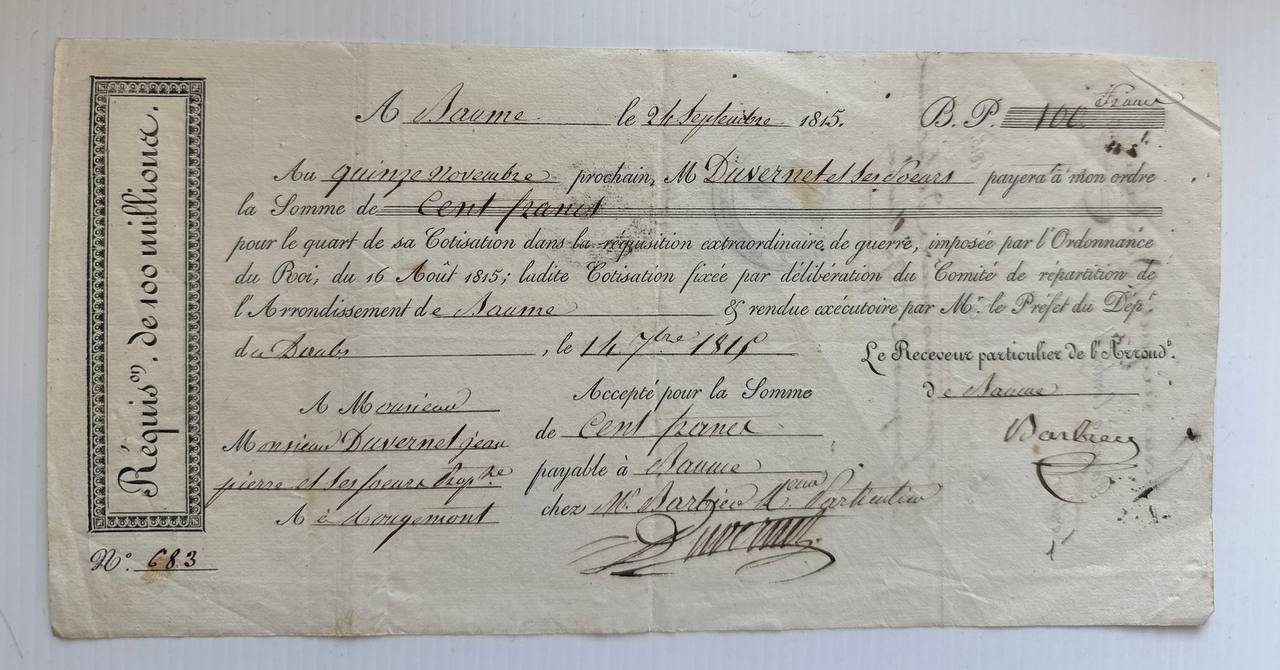 Réquis.on de 100 millions.
A Baume le 24 Septembre 1815. B. P 100 Francs
Au quinze novembre prochain, M Duvernet et ses Soeurs payera à mon ordre
la Somme de Cent francs
pour le quart de sa Cotisation dans la réquisition extraordinaire de guerre, imposée par l'Ordonnance
du Roi, du 16 Août 1815; ladite Cotisation fixée par délibération du Comité de répartition de
l'Arrondissement de Baume & rendue exécutoire par M.r le Préfet du Dép.t
du Doubs, le 14 7bre 1815
Le Receveur particulier de l'Arrond.t
de Baume
Barbier
A Monsieur
Monsieur Duvernet jean
pierre et ses
A à Rougemont
Accepté pour la Somme
de Cent francs
payable à Baume
chez Mr Barbier Rceveur Particulier
Duvernet
N.o 683